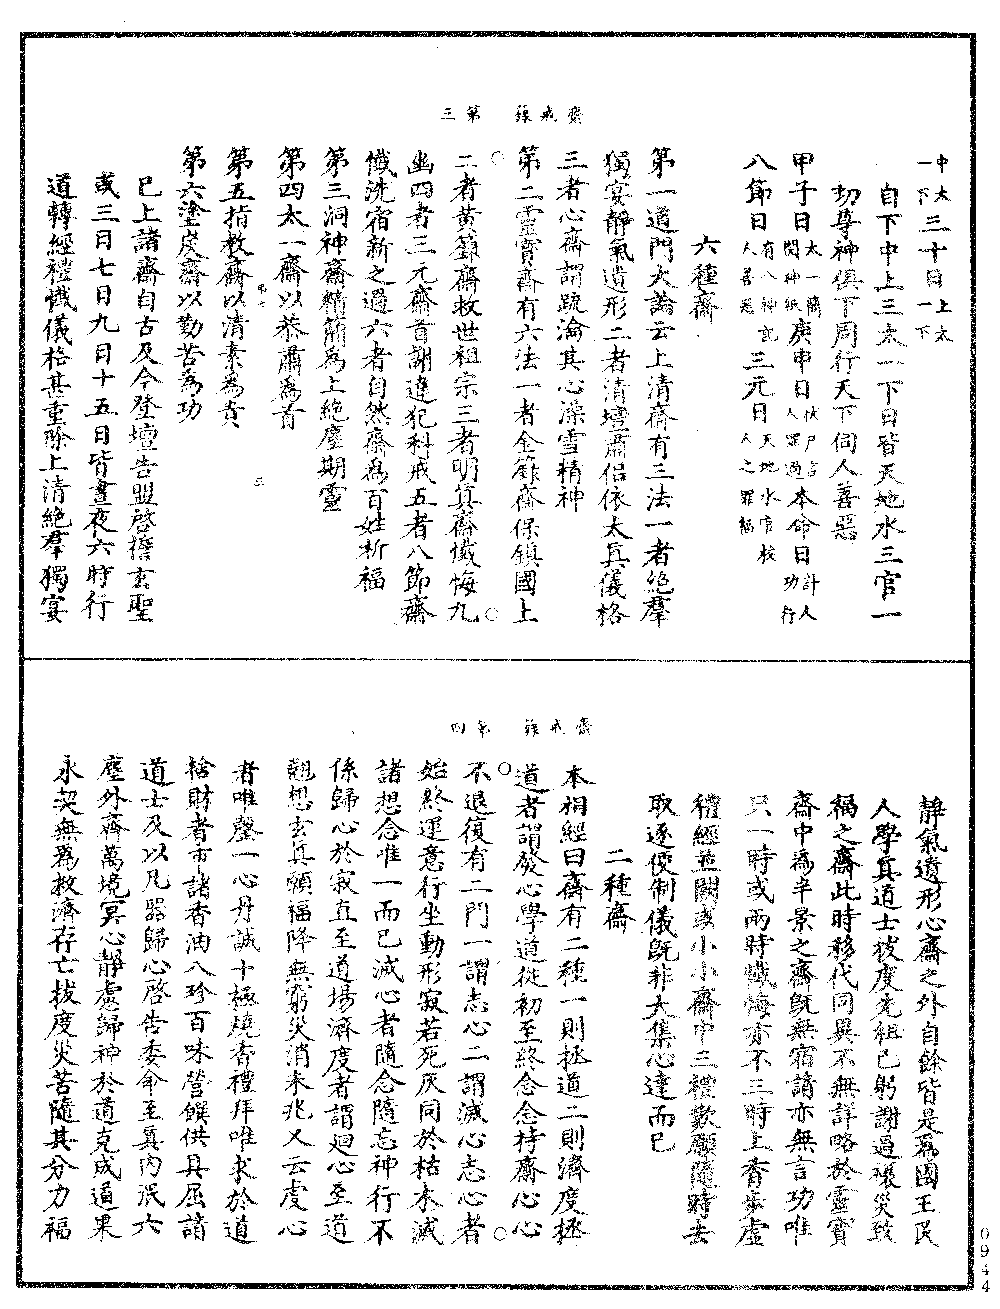 齋戒籙　第三
中太一下三十日上太一下
自下中上三太一下日皆天地水三官一
切尊神俱下周行天下伺人善惡
甲子日太一簡閱神紙庚申日伏尸言人罪過本命日計人功行
八節日有八神記人善惡三元日天地水官校人之罪福
六種齋
第一道門大論云上清齋有三法一者絕羣
獨宴靜氣遺形二者清壇肅侶依太真儀格
三者心齋謂疏瀹其心澡雪精神
第二靈寶齋有六法一者金籙齋保鎮國土
二者黃籙齋救世祖宗三者明真齋懺悔九
幽四者三元齋首謝違犯科戒五者八節齋
懺洗宿新之過六者自然齋為百姓祈福
第三洞神齋精簡為上絕塵期靈
第四太一齋以恭肅為首
第五指教齋以清素為貴
三
第六塗炭齋以勤苦為功
已上諸齋自古及今登壇告盟啓擔玄聖
或三日七日九日十五日皆晝夜六時行
道轉經禮懺儀格甚重除上清絕羣獨宴
齋戒籙　第四
靜氣遺形心齋之外自餘皆是為國王民
人學真道士拔度先祖已躬謝過禳災致
福之齋此時移代同異不無詳略於靈寶
齋中為半景之齋旣無宿請亦無言功唯
只一時或兩時懺悔亦不三時上香步虛
禮經並闕或小小齋中三禮歎願隨時去
取逐便制儀旣非大集心達而已
二種齋
本祠經曰齋有二種一則極道二則濟度極
道者謂發心學道從初至終念念持齋心心
不退復有二門一謂志心二謂滅心志心者
始終運意行坐動形寂若死灰同於枯木滅
諸想念唯一而已滅心者隨念隨忘神行不
係歸心於寂直至道場濟度者謂迴心至道
翹想玄真願福降無窮災消未兆又云虔心
者唯罄一心丹誠十極燒香禮拜唯求於道
捨財者市諸香油八珍百味營饌供具屈請
道士及以凡器歸心啓告委命至真内泯六
塵外齋萬境冥心靜慮歸神於道克成道果
永契無為救濟存亡拔度災苦隨其分力福
0944